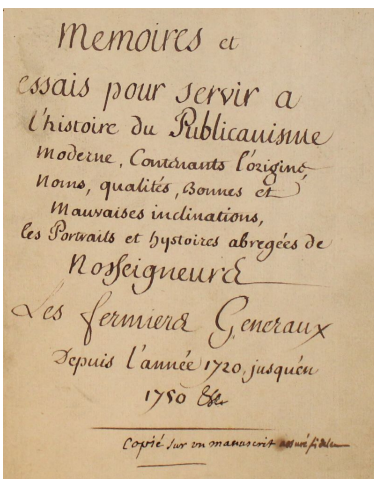 Memoires et
essais pour servir a
l'histoire du Publicanisme
Moderne, Contenants l'origine,
Noms, qualités, Bonnes et
Mauvaises inclinations,
les Portraits et hystoires abregées de
Nosseigneurs
Les fermiers Generaux
Depuis l'année 1720, jusqu'en
1750 &c.
Copié sur un manuscrit assuré fidele